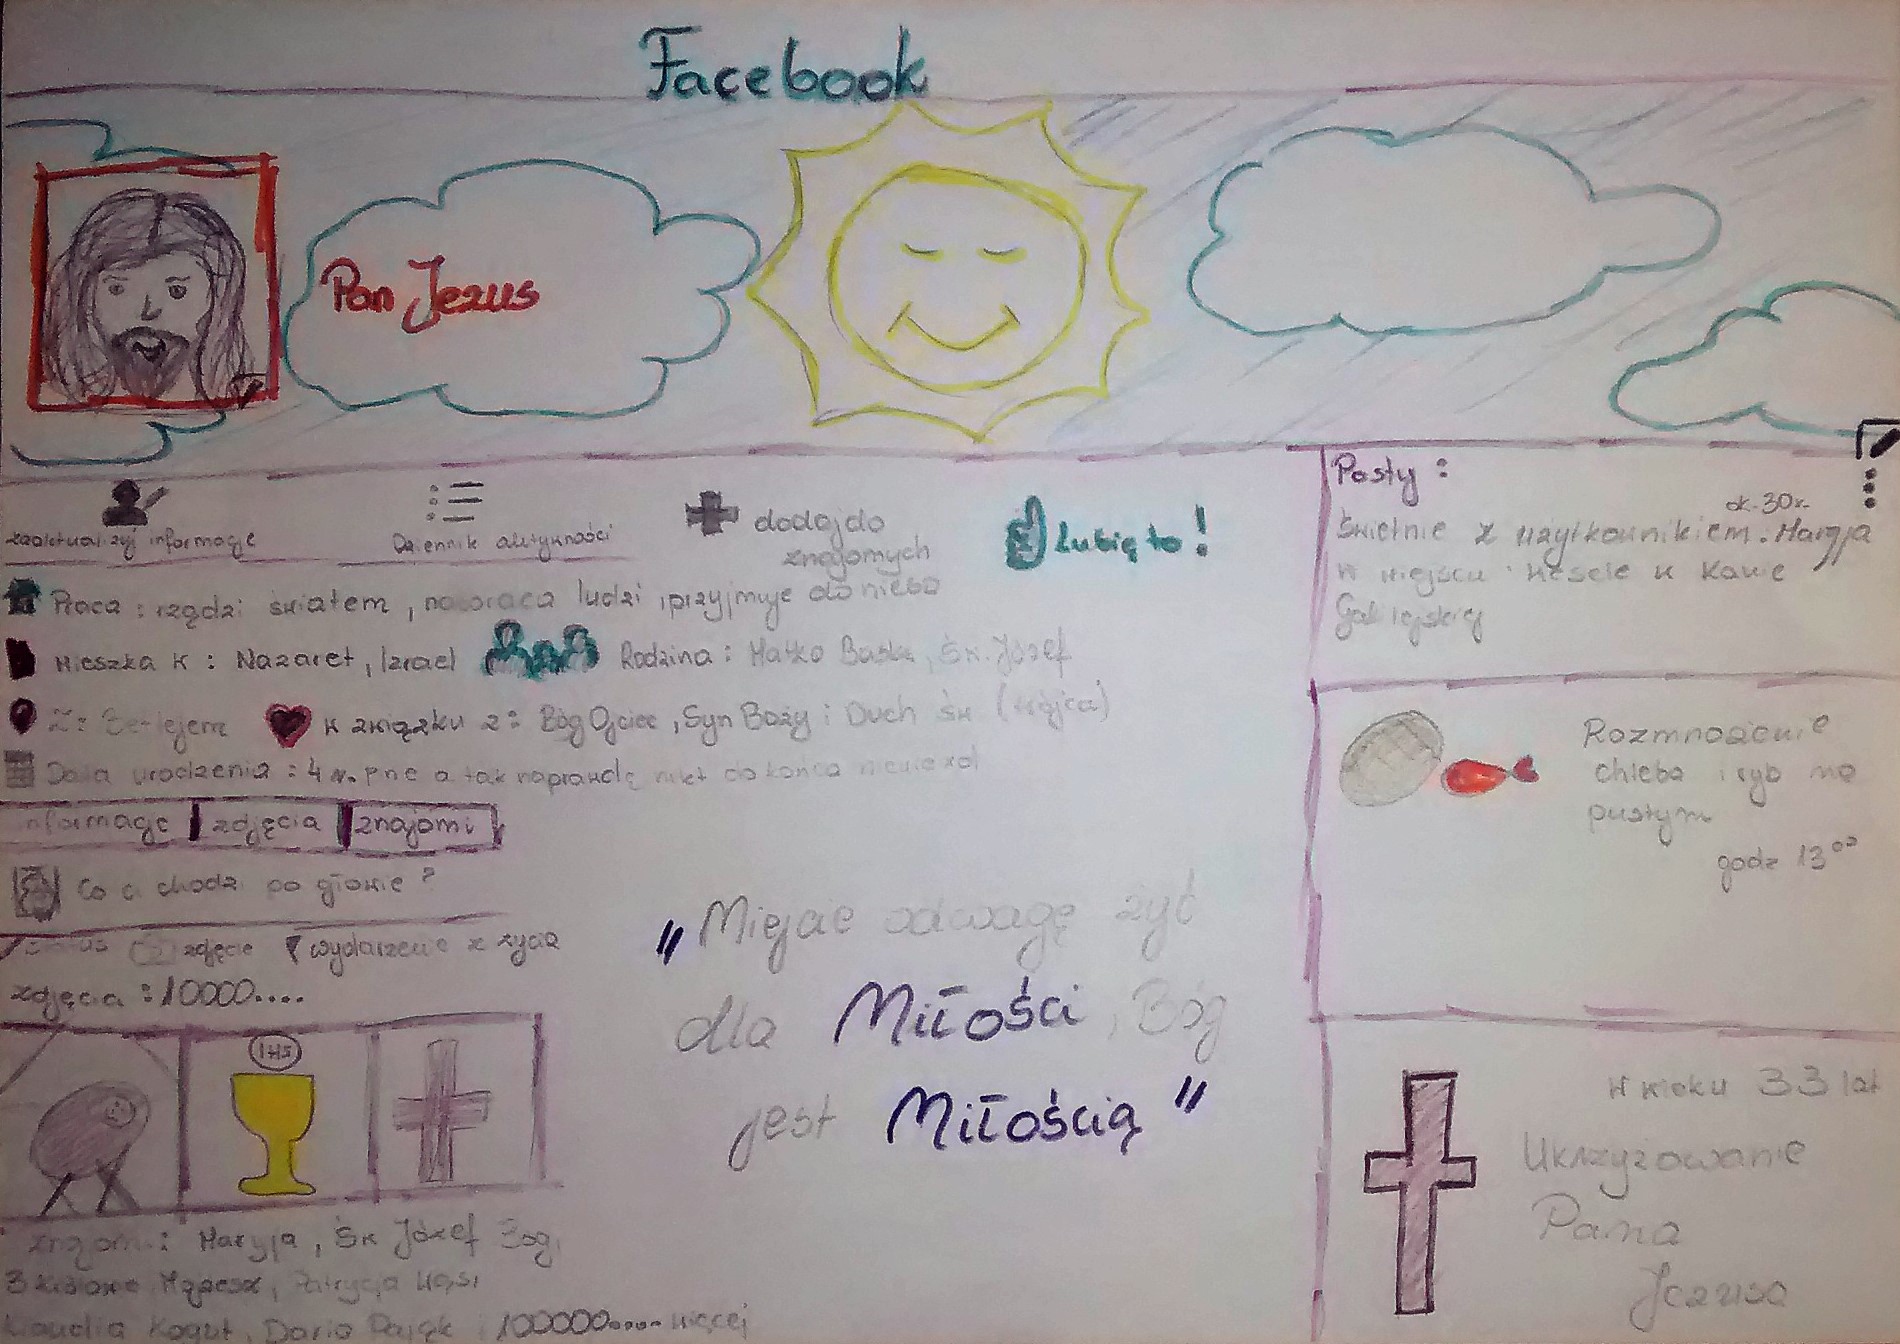 Facebook
Pan Jezus
zaaktualizuj informację
Dziennik aktywności
dodaj do
znajomych
Lubię to!
Praca : rządzi światem, nawraca ludzi i przyjmuje do nieba
Mieszka w : Nazaret, Izrael
Rodzina : Matko Boska, Św. Józef
Z: Betlejem
w związku z : Bóg Ojciec, Syn Boży i Duch Św (trójca)
Data urodzenia : 4 r. pne a tak naprawdę nikt do końca nie wie xd
informacje zdjęcia znajomi
Co ci chodzi po głowie ?
Status zdjęcie wydarzenie z życia
zdjęcia : 10000....
IHS
znajomi : Maryja, Św Józef Bóg,
3 królowie, Patrycja
Klaudia Kogut, Daria Pająk i 100000.... więcej
„Miejcie odwagę żyć
dla Miłości, Bóg
jest Miłością”
Posty :
ok. 30r.
Świetnie z użytkownikiem : Maryja
w miejscu : Wesele w Kanie
Galilejskiej
Rozmnożenie
chleba i ryb na
pustym
godz 13⁰⁰
w wieku 33 lat
Ukrzyżowanie
Pana
Jezusa